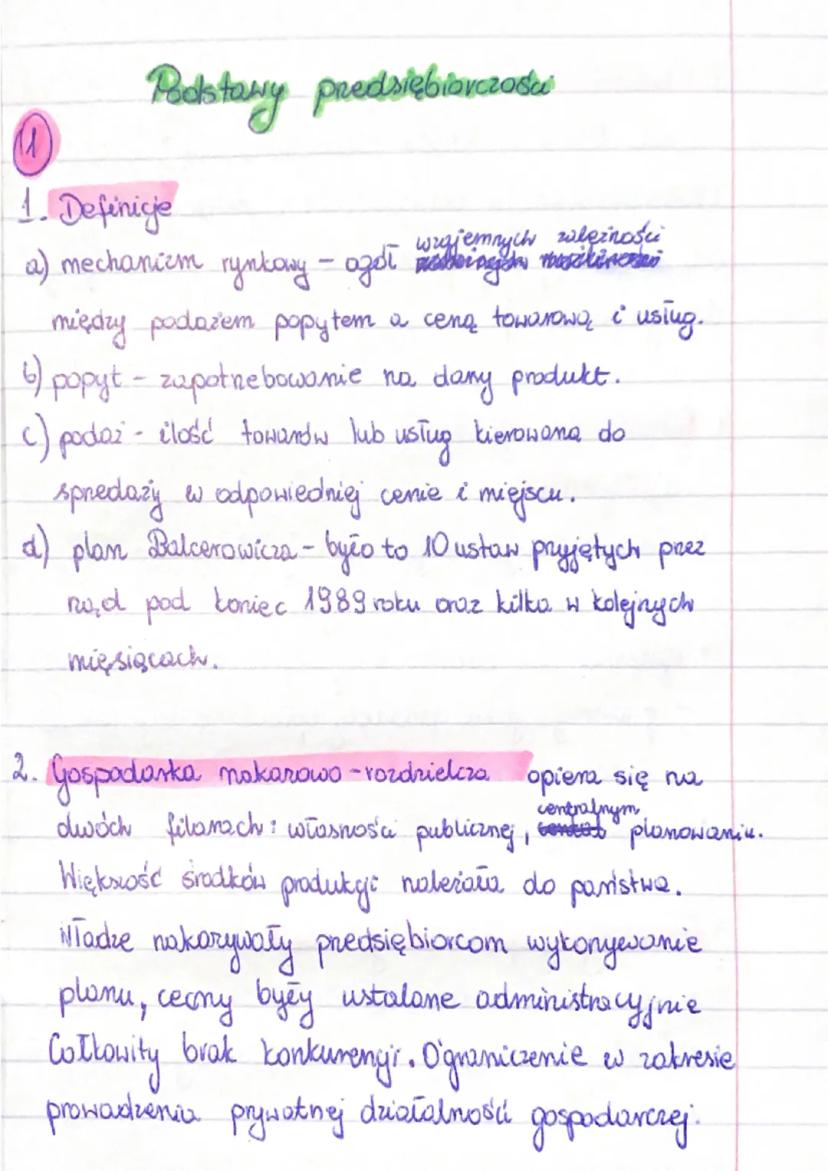 Podstawy przedsiębiorczości
1
1. Definicje
a) mechanizm rynkowy - ogół wzajemnych zależności
między podażem popytem a ceną towarową i usług.
b) popyt - zapotrzebowanie na dany produkt.
c) podaż - ilość towarów lub usług kierowana do
sprzedaży w odpowiedniej cenie i miejscu.
d) plan Balcerowicza - było to 10 ustaw przyjętych przez
rząd pod koniec 1989 roku oraz kilka w kolejnych
miesiącach.
2. Gospodarka nakazowo-rozdzielcza opiera się na
dwóch filarach: własności publicznej, centralnym planowaniu.
Większość środków produkcji należała do państwa.
Władze nakazywały przedsiębiorcom wykonywanie
planu, ceny były ustalane administracyjnie
Całkowity brak konkurencji. Ograniczenie w zakresie
prowadzenia prywatnej działalności gospodarczej.